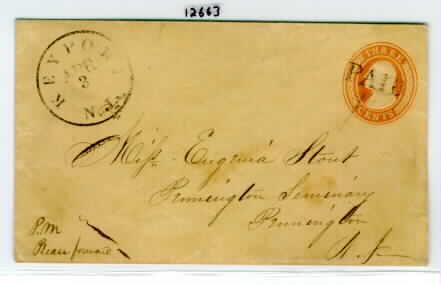 12663
KEYPORT
APR
3
N.J.
THREE
PAID
CENTS
Miss Eugenia Stout
Pennington Seminary
Pennington
N. J.
P.M.
Please forward